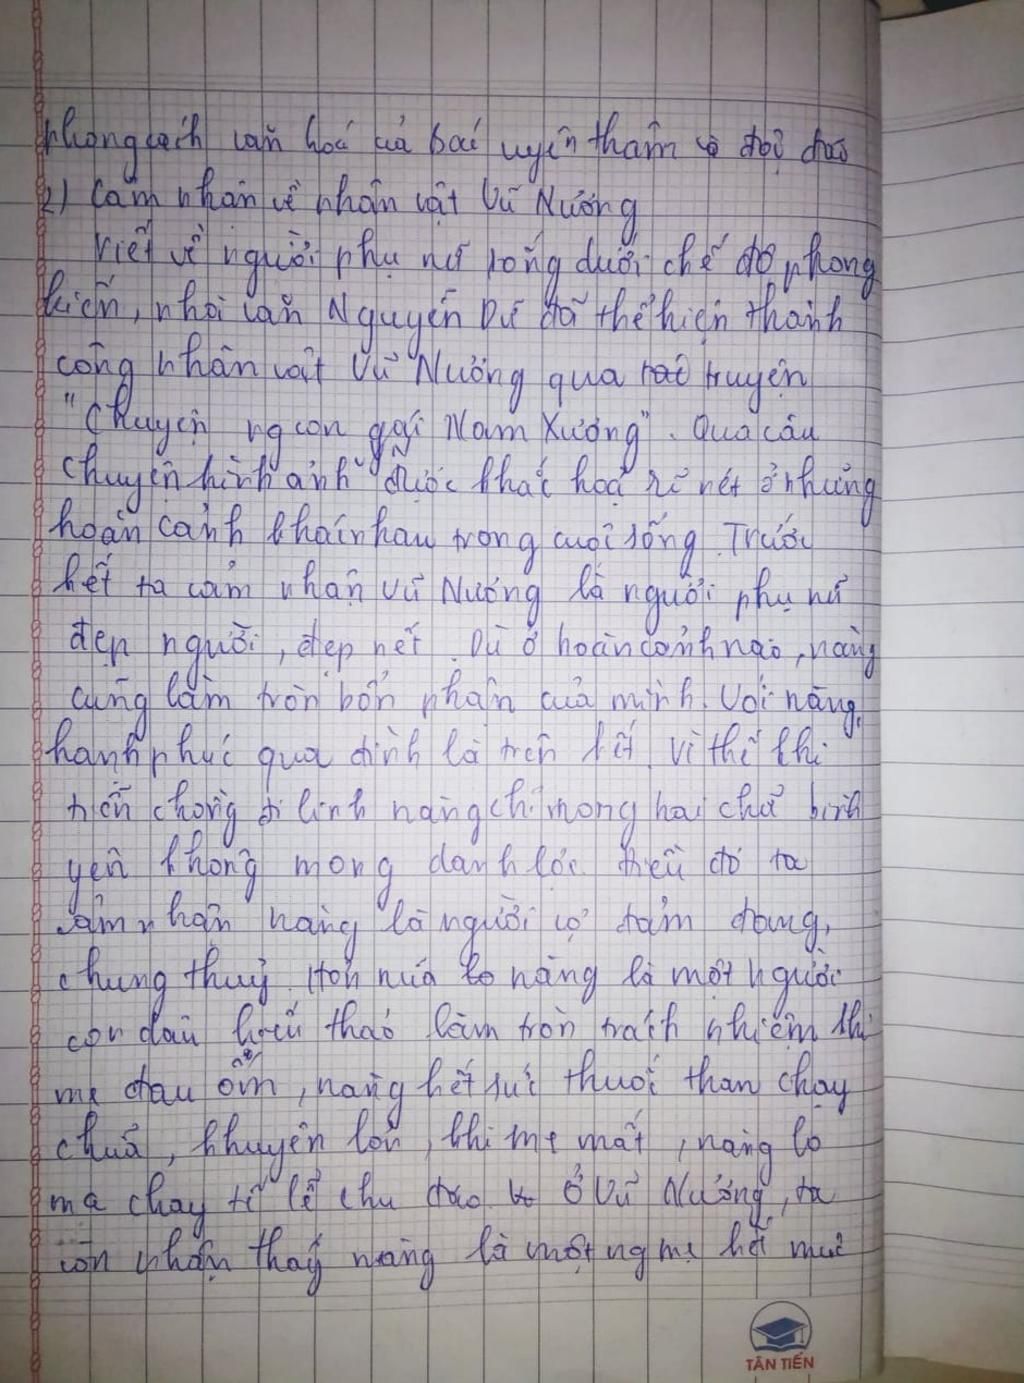 phong cách văn hoá của bác uyên thâm và độc đáo
2) Cảm nhận về nhân vật Vũ Nương
Viết về người phụ nữ sống dưới chế độ phong
kiến, nhà văn Nguyễn Dữ đã thể hiện thành
công nhân vật Vũ Nương qua truyện
"Chuyện ng con gái Nam Xương". Qua câu
chuyện hình ảnh VN được khắc hoạ rõ nét ở những
hoàn cảnh khác nhau trong cuộc sống. Trước
hết ta cảm nhận Vũ Nương là người phụ nữ
đẹp người, đẹp nết. Dù ở hoàn cảnh nào, nàng
cũng làm tròn bổn phận của mình. Với nàng,
hạnh phúc gia đình là trên hết. Vì thế khi
tiễn chồng đi lính nàng chỉ mong hai chữ bình
yên không mong danh lợi. Điều đó ta
cảm nhận nàng là người vợ đảm đang,
chung thuỷ. Hơn nữa nàng là một người
con dâu hiếu thảo làm tròn trách nhiệm khi
mẹ đau ốm, nàng hết sức thuốc than chạy
chữa, khuyên lơn, khi mẹ mất, nàng lo
ma chay tế lễ chu đáo. Ở Vũ Nương, ta
còn nhận thấy nàng là một ng mẹ hết mực
TÂN TIẾN